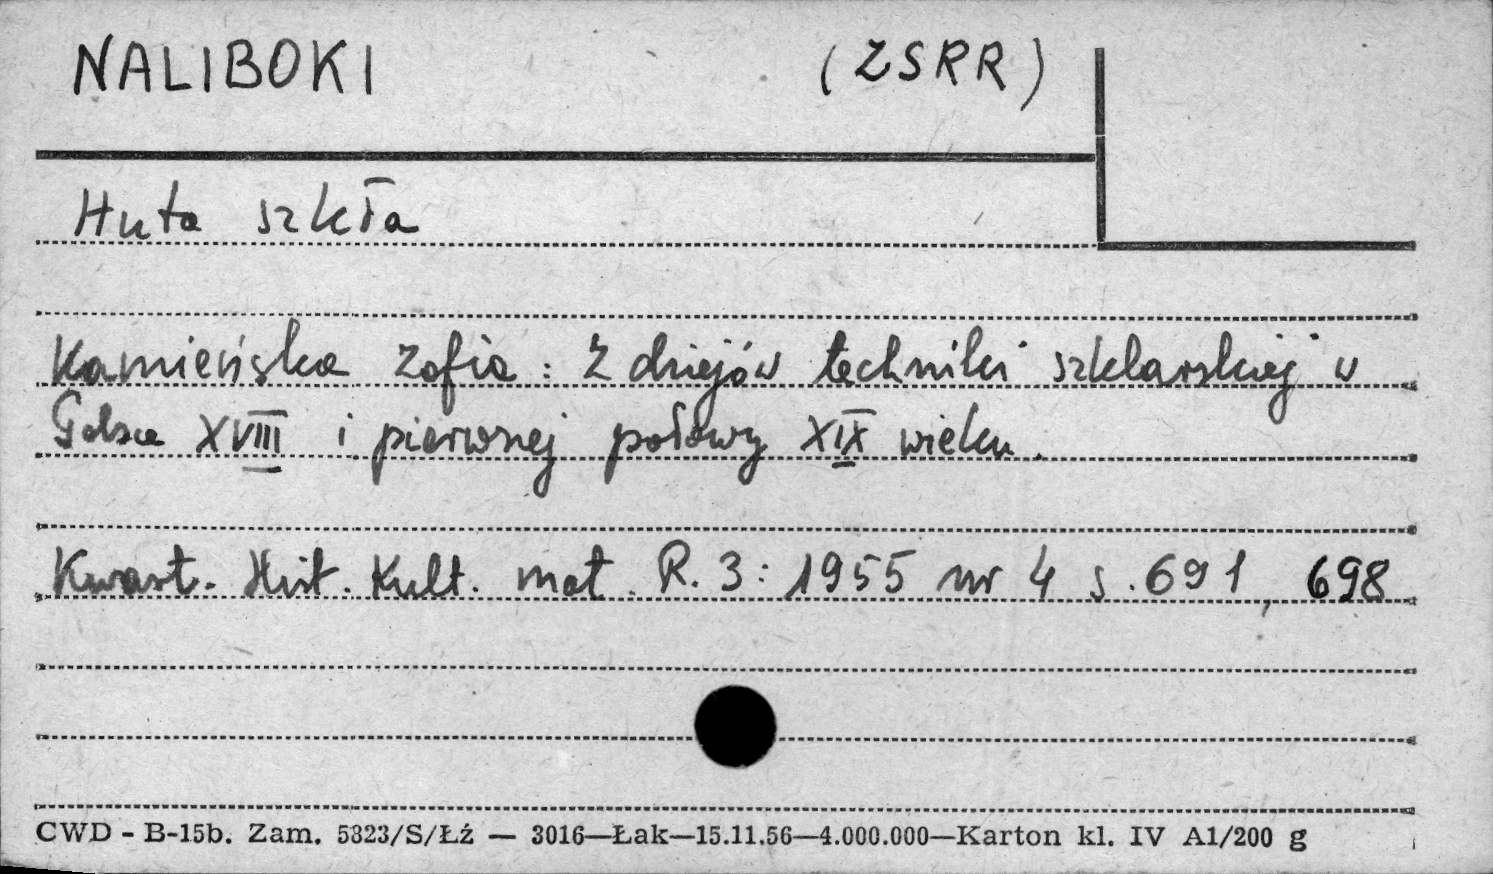 NALIBOKI (ZSRR)
Huta szkła
Kamieńska Zofia: Z dziejów techniki szklarskiej w
Polsce XVIII i pierwszej połowy XIX wieku.
Kwart. Hist. Kult. mat. R. 3: 1955 nr 4 s. 691, 698
CWD - B-15b. Zam. 5323/S/Łź — 3016—Łak—15.11.56—4.000.000—Karton kl. IV A1/200 g